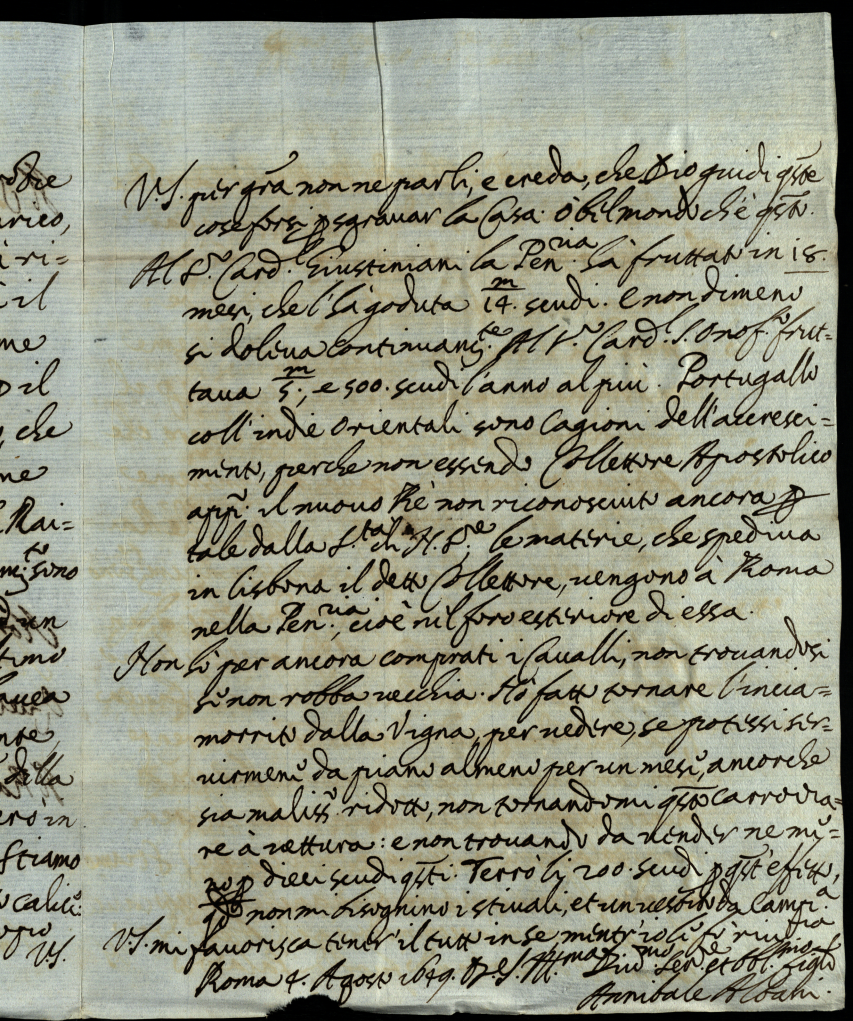 odie
arico,
à ri=
il
me
o il
, che
me
Rai=
sono
un
timo
ante,
della
ero in
stiamo
V.S.
V.S. per gra non ne parli, e creda, che Dio guidi qste
cose forsi p sgravar la Casa. ò bel mondo ch'è qsto.
Al Sr. Card.l Giustiniani la Pen.ria hà fruttato in 18.
mesi, che l'hà goduta 14.m scudi. e non dimeno
si doleva continuam.te Al Sr. Card.l S. Onof.o frut=
tava 5.m, e 500. scudi l'anno al più. Portugallo
coll'indie orientali sono cagioni dell'accresci=
mento, perche non essendo Collettore Apostolico
app.o il nuovo Rè non riconosciuto ancora p
tale dalla S.tà di N. S.re le materie, che spediva
in lisbona il detto Collettore, vengono à Roma
nella Pen.ria, cioè nel foro esteriore di essa.
Non hò per ancora comprati i Cavalli, non trovandosi
se non robba vecchia. Hò fatto tornare l'incia=
morrito dalla Vigna, per vedere, se potessi ser=
virmene da piano almeno per un mese, ancorche
sia maliss.o ridotto, non tornandomi qsto carrozza=
re à vettura: e non trovando da vender ne me=
no p dieci scudi qsti. Terrò li 200. scudi p qst'effetto,
non mi bisognino i stivali, et un vestito da Camp.a
V.S. mi favorisca tener il tutto in se, mentr'io li fò riv.za
Roma 4. Agosto 1649. Di V.S. Ill.ma Div.mo Ser.re et Obl.mo figlio
Annibale Albani.